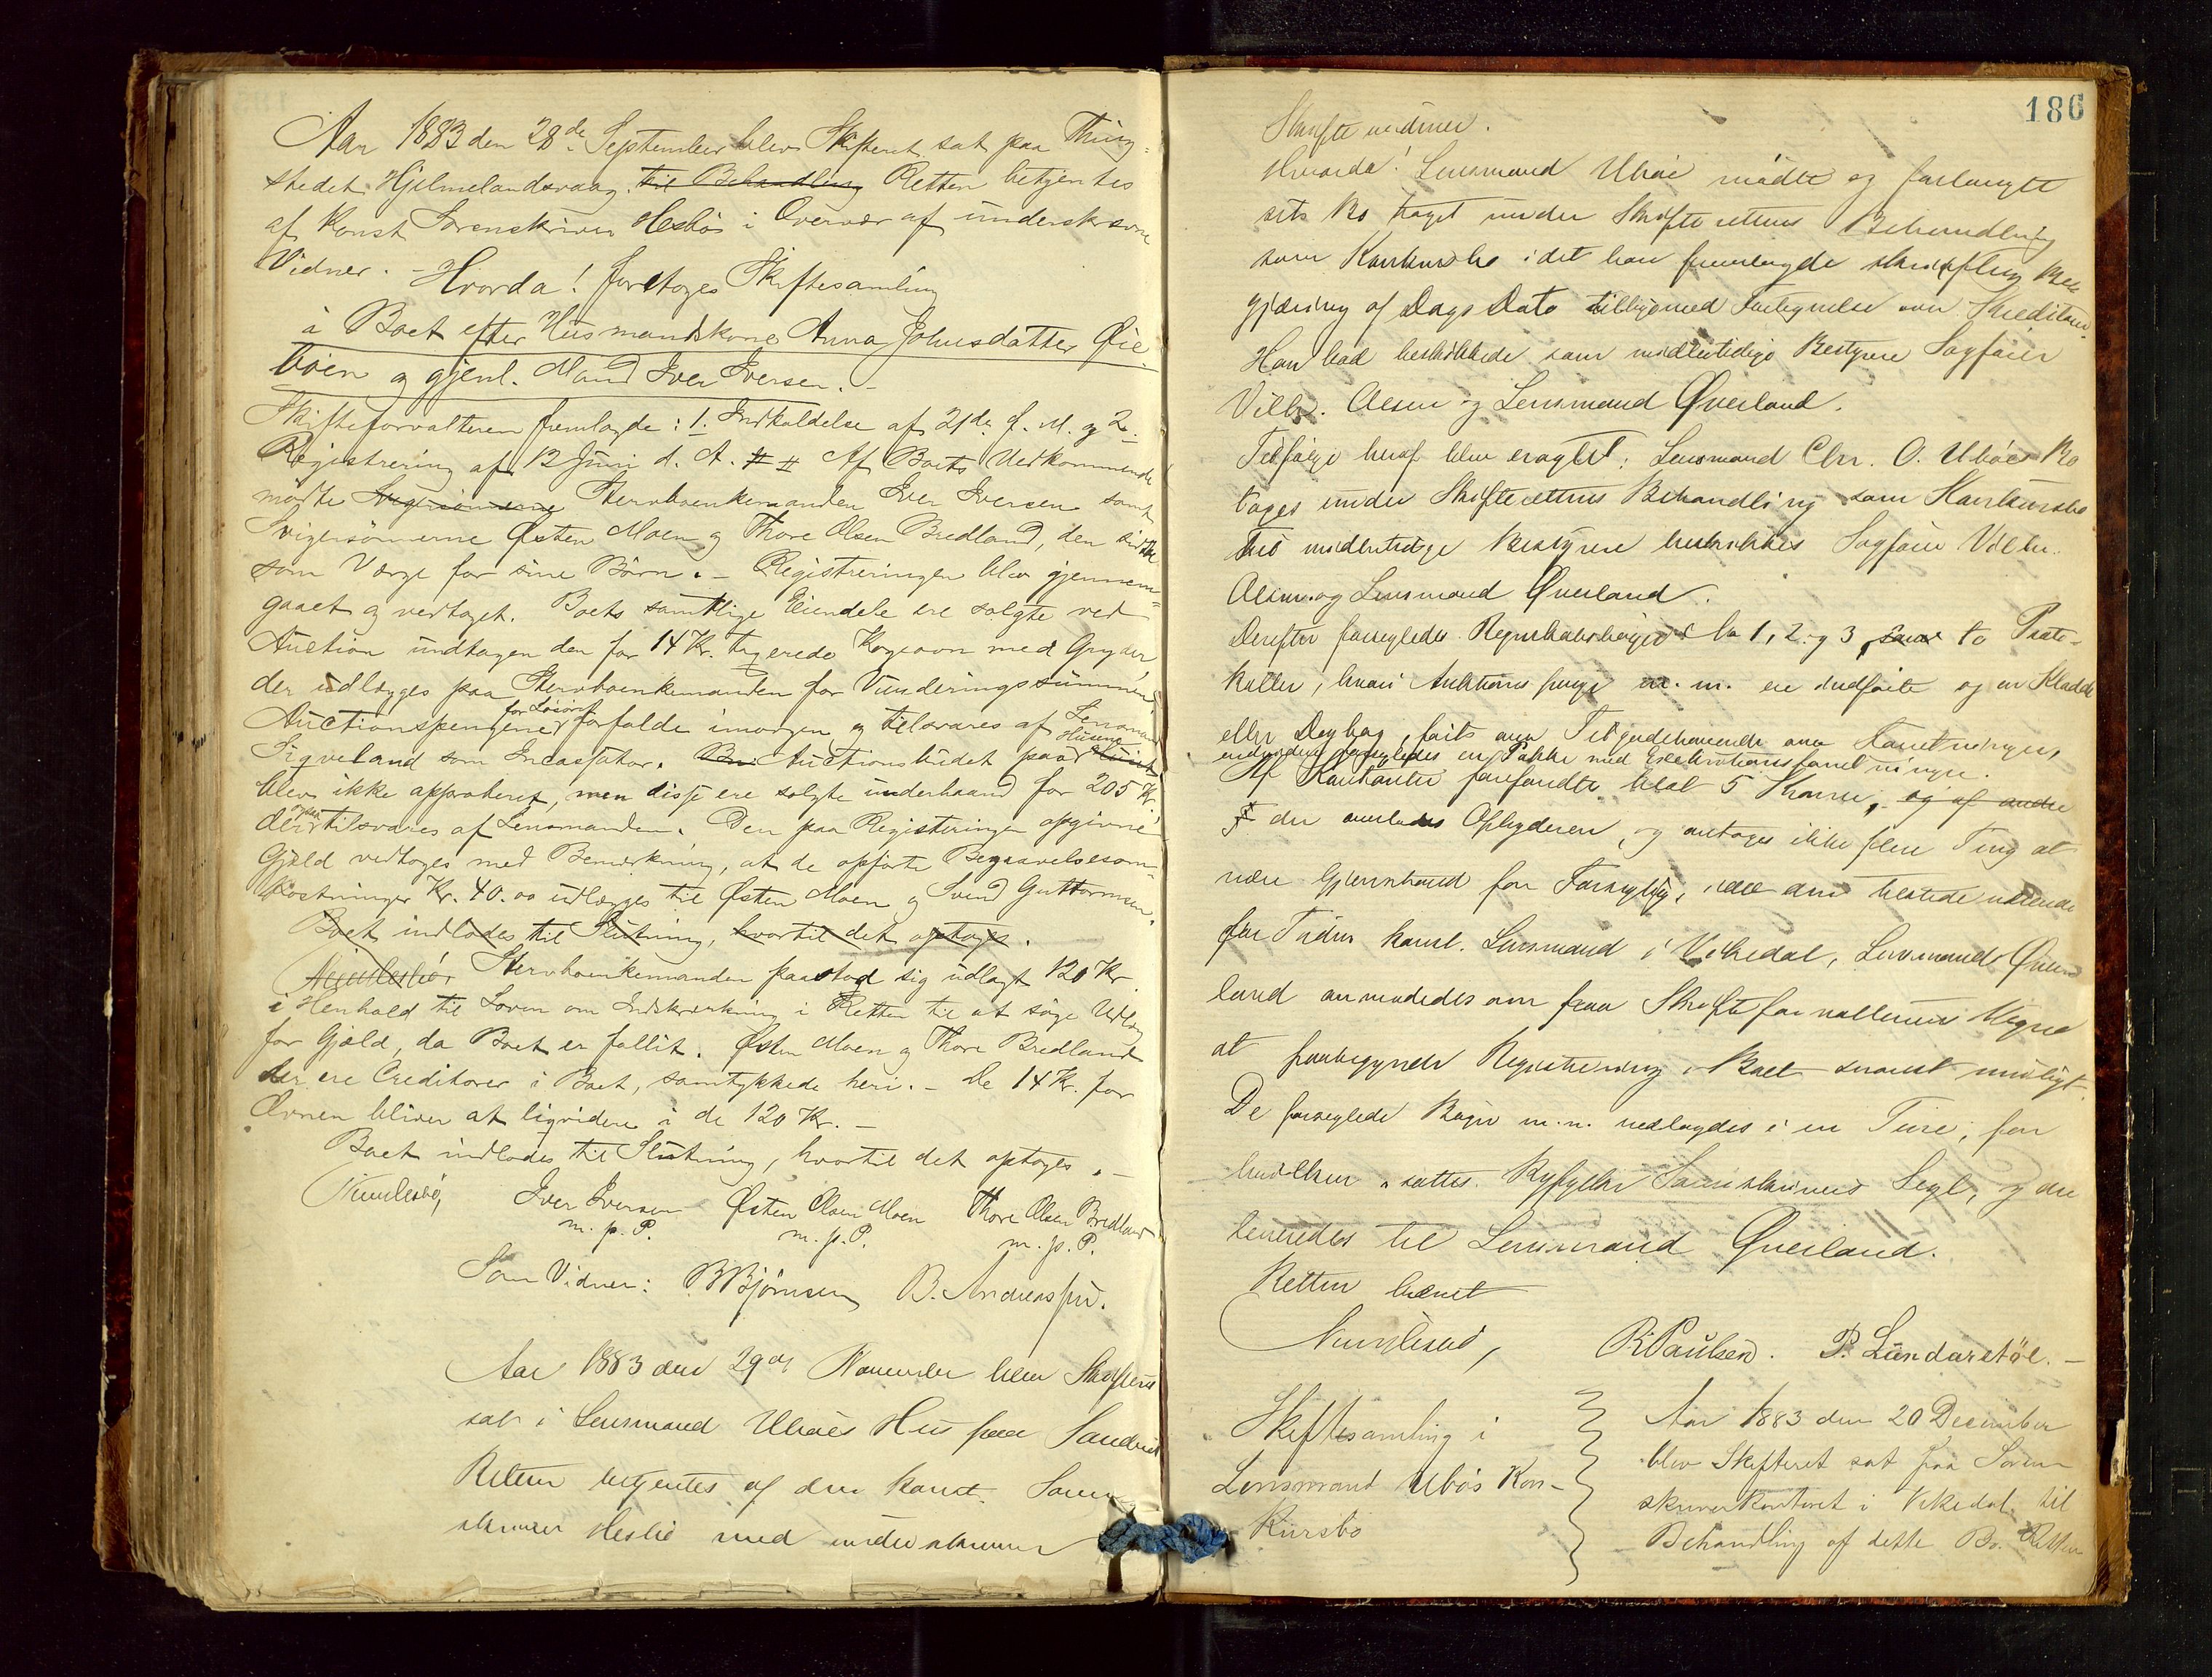 Aar 1883 den 28de September blev Skifteret sat paa Thing-
stedet Hjelmelandsvaag til Behandling Retten betjentes
af Konst Sorenskriver Hesbö i Overvær af underskrevne
Vidner. - Hvorda! foretoges Skiftesamling
i Boet efter Husmandskone Anna Johnsdatter Øie
böen og gjenl. Mand Iver Iversen. -
Skifteforvalteren fremlagde: 1. Indkaldelse af 21de f. M. og 2.
Registrering af 12 Juni d. A. # # Af Boets Vedkommende
mødte Svigersönnerne Stervboenkemanden Iver Iversen samt
Svigersönnerne Østen Moen og Thore Olsen Bredland, den sidste
som Værge for sine Börn. - Registreringen blev gjennem-
gaaet og vedtaget. Boets samtlige Eiendele ere solgte ved
Auction undtagen den for 14 Kr. taxerede Kogeovn med Gryder
der udlægges paa Stervboenkemanden for Vurderingssummen
Auctionspengene for Lösöre forfalde imorgen og tilsvares af Lensmand
Tigveland som Incassator. Auctionsbudet paa Husene
blev ikke approberet, men disse ere solgte underhaand for 205 Kr.
der ogsaa tilsvares af Lensmanden. Den paa Registeringen opgivne
Gjæld vedtoges med Bemærkning, at de opførte Begravelsesom-
kostninger Kr. 40.00 udlægges til Østen Moen og Svend Guttormsen.
Boet indlodes til Slutning, hvortil det optoges.
Stervboenkemanden paastod sig udlagt 120 Kr.
i Henhold til Loven om Indskrænkning i Retten til at søge Udlæg
for Gjæld, da Boet er fallit. Østen Moen og Thore Bredland
der ere Creditorer i Boet, samtykkede heri. - De 14 Kr. for
Ovnen bliver at liqvidere i de 120 Kr. -
Boet indlodes til Slutning, hvortil det optoges. -
Iver Iversen Østen Olsen Moen Thore Olsen Bredland
m. p. P. m. p. P. m. p. P.
Som Vidner: B Bjørnsen B. Andreassen.
Aar 1883 den 29de November blev Skifteret
sat i Lensmand Ubøes Hus paa Sandeid
Retten betjentes af den konst. Soren-
skriver Hesbö med underskrevne
186
Skiftevidner.
Hvorda! Lensmand Uböe mødte og forlangte
sit Bo taget under Skifterettens Behandling
som Konkursbo idet han fremlagde skriftlig Be-
gjæring af Dags Dato tilligemed Fortegnelse over Kreditorer.
Han bad beskikkede som midlertidige Bestyrere Sagfører
Vilh. Olsen og Lensmand Qverland.
Tilfølge heraf blev eragtet: Lensmand Chr. O. Ubøes Bo
tages under Skifterettens Behandling som Konkursbo
Til midlertidige Bestyrere beskikkes Sagfører Vilh.
Olsen og Lensmand Qverland.
Derefter forsegledes Regnskabsbøger No 1, 2 og 3, to Proto-
koller, hvori Auktionspenge m. m. ere indførte og en Kladde
eller Dagbog, førte over Tilgodehavende
endvidere forsegledes en Pakke med Exekutionsforretninger.
Af Kontanter forefandtes ialt 5 Kroner, og af andre
der overlodes Opbyderen, og antoges ikke flere Ting at
være Gjenstand for Forsegling,
for Tiden konst. Lensmand i Vikedal, Lensmand Qver-
land anmodedes om paa Skifteforvalterens Vegne
at paabegynde Registrering i Boet snarest muligt.
De forseglede Bøger m. m. nedlagdes i en Tine, for
hvilken sattes Ryfylke Sorenskriveris Segl, og den
leveredes til Lensmand Qverland.
Retten hævet
R Paulsen. P. Lundarstöl. -
Skiftesamling i
Lensmand Ubøs Kon-
kursbo
Aar 1883 den 20 December
blev Skifteret sat paa Soren-
skriverkontoret i Vikedal til
Behandling af dette Bo. Retten